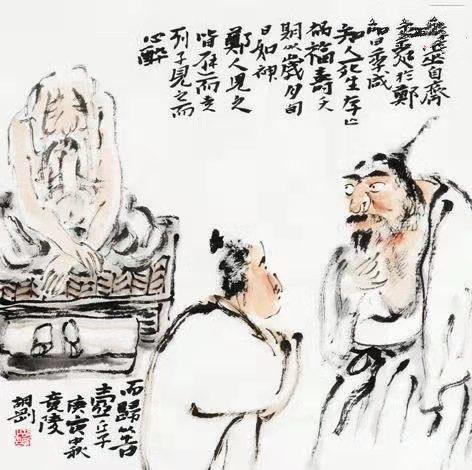 巫自齊
來處於鄭
命曰季咸
知人死生存亡
禍福壽夭
期以歲月旬
日如神
鄭人見之
皆避而走
列子見之而
心醉
而歸以告
壺丘子
庚寅中秋
竟陵
胡